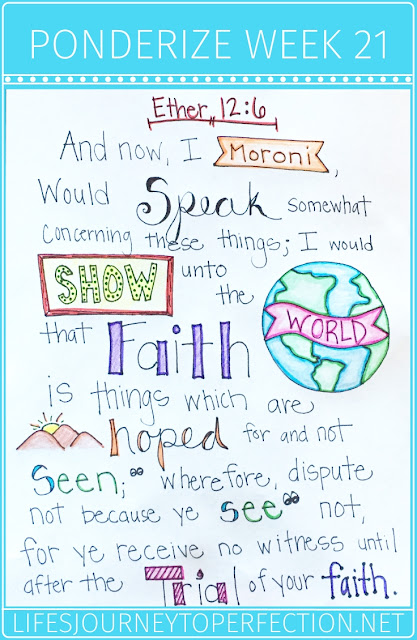 PONDERIZE WEEK 21
Ether 12:6
And now, I Moroni,
Would Speak somewhat
concerning these things; I would
SHOW unto
the WORLD
that Faith
is things which are
hoped for and not
Seen; wherefore, dispute
not because ye see not,
for ye receive no witness until
after the Trial of your faith.
LIFESJOURNEYTOPERFECTION.NET